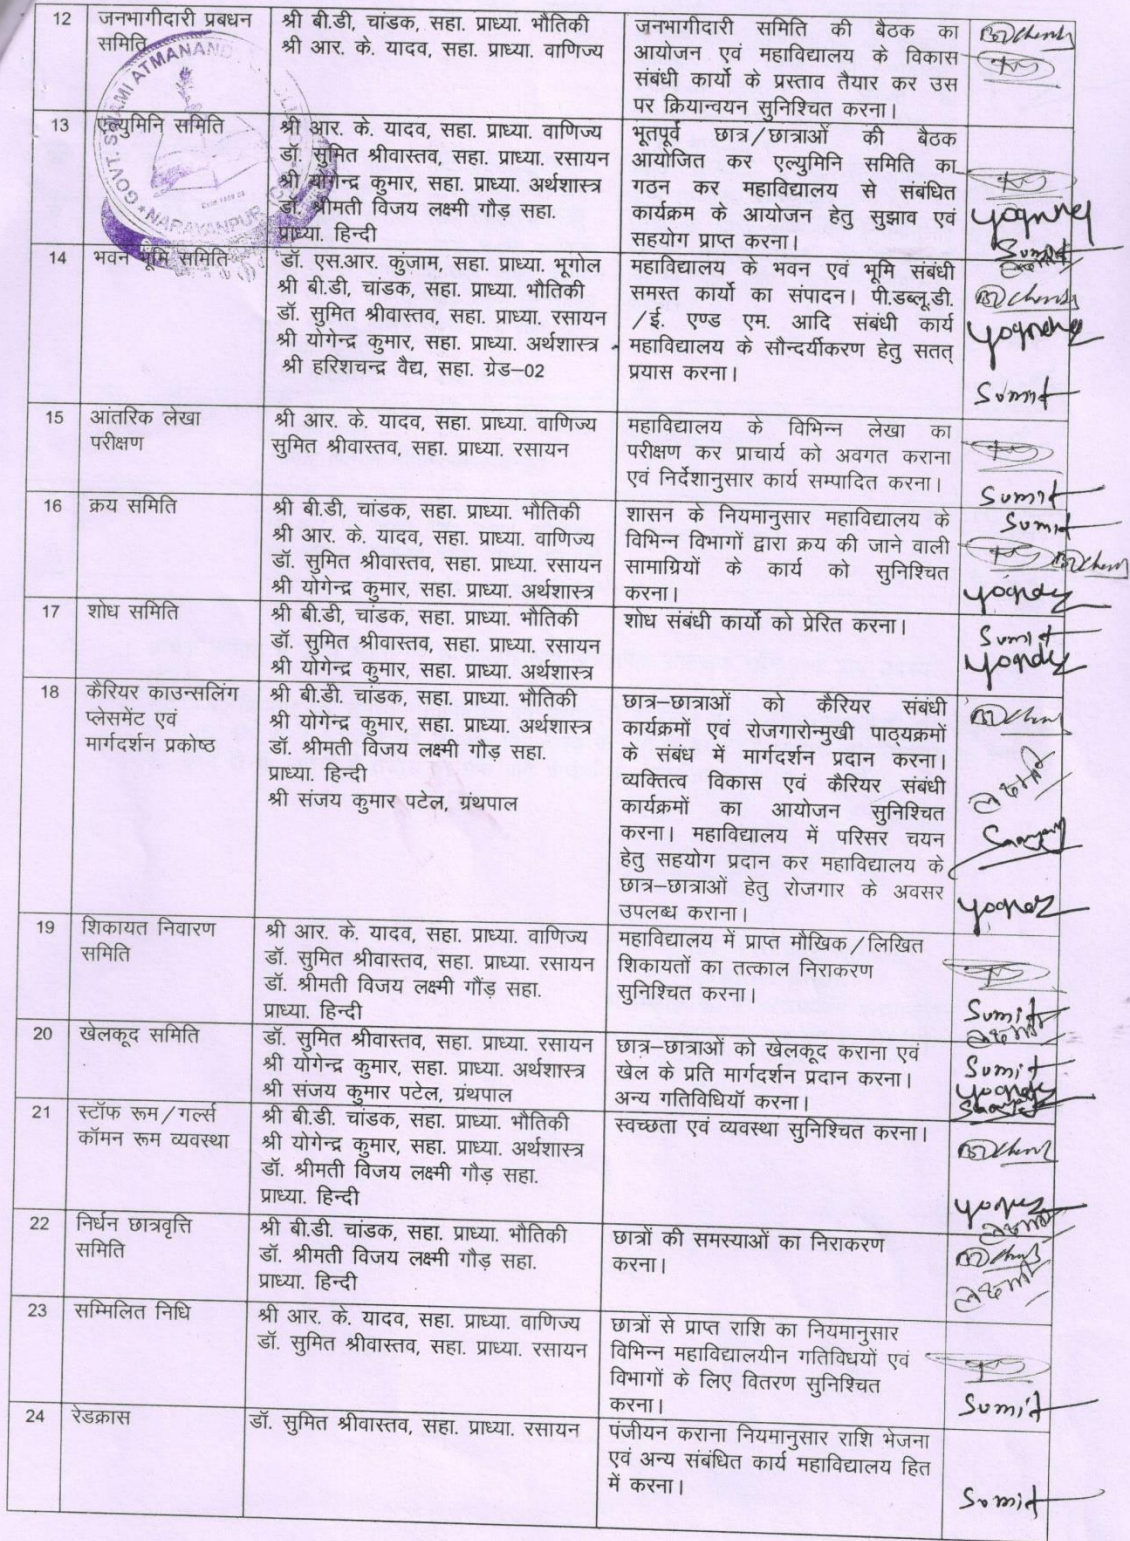 12 जनभागीदारी प्रबधन समिति
श्री बी.डी, चांडक, सहा. प्राध्या. भौतिकी
श्री आर. के. यादव, सहा. प्राध्या. वाणिज्य
जनभागीदारी समिति की बैठक का
आयोजन एवं महाविद्यालय के विकास
संबंधी कार्यो के प्रस्ताव तैयार कर उस
पर क्रियान्वयन सुनिश्चित करना।
GOVT. SWAMI ATMANAND
NARAYANPUR
13 एल्युमिनि समिति
श्री आर. के. यादव, सहा. प्राध्या. वाणिज्य
डॉ. सुमित श्रीवास्तव, सहा. प्राध्या. रसायन
श्री योगेन्द्र कुमार, सहा. प्राध्या. अर्थशास्त्र
डॉ. श्रीमती विजय लक्ष्मी गौड़ सहा.
प्राध्या. हिन्दी
भूतपूर्व छात्र/छात्राओं की बैठक
आयोजित कर एल्युमिनि समिति का
गठन कर महाविद्यालय से संबंधित
कार्यक्रम के आयोजन हेतु सुझाव एवं
सहयोग प्राप्त करना।
Sumit
14 भवन भूमि समिति
डॉ. एस.आर. कुंजाम, सहा. प्राध्या. भूगोल
श्री बी.डी, चांडक, सहा. प्राध्या. भौतिकी
डॉ. सुमित श्रीवास्तव, सहा. प्राध्या. रसायन
श्री योगेन्द्र कुमार, सहा. प्राध्या. अर्थशास्त्र
श्री हरिशचन्द्र वैद्य, सहा. ग्रेड–02
महाविद्यालय के भवन एवं भूमि संबंधी
समस्त कार्यो का संपादन। पी.डब्लू.डी.
/ई. एण्ड एम. आदि संबंधी कार्य
महाविद्यालय के सौन्दर्यीकरण हेतु सतत्
प्रयास करना।
Sumit
15 आंतरिक लेखा
परीक्षण
श्री आर. के. यादव, सहा. प्राध्या. वाणिज्य
सुमित श्रीवास्तव, सहा. प्राध्या. रसायन
महाविद्यालय के विभिन्न लेखा का
परीक्षण कर प्राचार्य को अवगत कराना
एवं निर्देशानुसार कार्य सम्पादित करना।
Sumit
16 क्रय समिति
श्री बी.डी, चांडक, सहा. प्राध्या. भौतिकी
श्री आर. के. यादव, सहा. प्राध्या. वाणिज्य
डॉ. सुमित श्रीवास्तव, सहा. प्राध्या. रसायन
श्री योगेन्द्र कुमार, सहा. प्राध्या. अर्थशास्त्र
शासन के नियमानुसार महाविद्यालय के
विभिन्न विभागों द्वारा क्रय की जाने वाली
सामाग्रियों के कार्य को सुनिश्चित
करना।
Sumit
17 शोध समिति
श्री बी.डी, चांडक, सहा. प्राध्या. भौतिकी
डॉ. सुमित श्रीवास्तव, सहा. प्राध्या. रसायन
श्री योगेन्द्र कुमार, सहा. प्राध्या. अर्थशास्त्र
शोध संबंधी कार्यो को प्रेरित करना।
Sumit
18 कैरियर काउन्सलिंग
प्लेसमेंट एवं
मार्गदर्शन प्रकोष्ठ
श्री बी.डी. चांडक, सहा. प्राध्या. भौतिकी
श्री योगेन्द्र कुमार, सहा. प्राध्या. अर्थशास्त्र
डॉ. श्रीमती विजय लक्ष्मी गौड़ सहा.
प्राध्या. हिन्दी
श्री संजय कुमार पटेल, ग्रंथपाल
छात्र–छात्राओं को कैरियर संबंधी
कार्यक्रमों एवं रोजगारोन्मुखी पाठ्यक्रमों
के संबंध में मार्गदर्शन प्रदान करना।
व्यक्तित्व विकास एवं कैरियर संबंधी
कार्यक्रमों का आयोजन सुनिश्चित
करना। महाविद्यालय में परिसर चयन
हेतु सहयोग प्रदान कर महाविद्यालय के
छात्र–छात्राओं हेतु रोजगार के अवसर
उपलब्ध कराना।
19 शिकायत निवारण
समिति
श्री आर. के. यादव, सहा. प्राध्या. वाणिज्य
डॉ. सुमित श्रीवास्तव, सहा. प्राध्या. रसायन
डॉ. श्रीमती विजय लक्ष्मी गौंड़ सहा.
प्राध्या. हिन्दी
महाविद्यालय में प्राप्त मौखिक/लिखित
शिकायतों का तत्काल निराकरण
सुनिश्चित करना।
Sumit
20 खेलकूद समिति
डॉ. सुमित श्रीवास्तव, सहा. प्राध्या. रसायन
श्री योगेन्द्र कुमार, सहा. प्राध्या. अर्थशास्त्र
श्री संजय कुमार पटेल, ग्रंथपाल
छात्र–छात्राओं को खेलकूद कराना एवं
खेल के प्रति मार्गदर्शन प्रदान करना।
अन्य गतिविधियॉ करना।
Sumit
21 स्टॉफ रूम/गर्ल्स
कॉमन रूम व्यवस्था
श्री बी.डी. चांडक, सहा. प्राध्या. भौतिकी
श्री योगेन्द्र कुमार, सहा. प्राध्या. अर्थशास्त्र
डॉ. श्रीमती विजय लक्ष्मी गौड़ सहा.
प्राध्या. हिन्दी
स्वच्छता एवं व्यवस्था सुनिश्चित करना।
22 निर्धन छात्रवृत्ति
समिति
श्री बी.डी. चांडक, सहा. प्राध्या. भौतिकी
डॉ. श्रीमती विजय लक्ष्मी गौड़ सहा.
प्राध्या. हिन्दी
छात्रों की समस्याओं का निराकरण
करना।
23 सम्मिलित निधि
श्री आर. के. यादव, सहा. प्राध्या. वाणिज्य
डॉ. सुमित श्रीवास्तव, सहा. प्राध्या. रसायन
छात्रों से प्राप्त राशि का नियमानुसार
विभिन्न महाविद्यालयीन गतिविधयों एवं
विभागों के लिए वितरण सुनिश्चित
करना।
Sumit
24 रेडक्रास
डॉ. सुमित श्रीवास्तव, सहा. प्राध्या. रसायन
पंजीयन कराना नियमानुसार राशि भेजना
एवं अन्य संबंधित कार्य महाविद्यालय हित
में करना।
Sumit